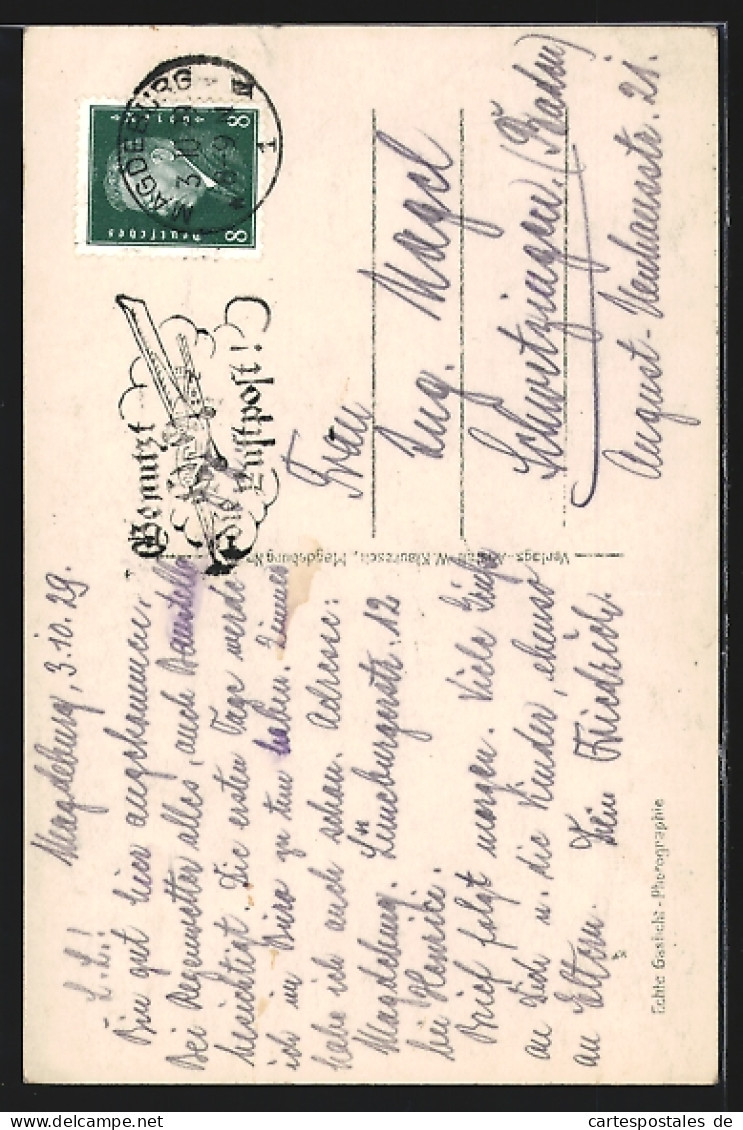 Magdeburg, 3.10.29.
L. L.!
Bin gut hier angekommen.
Bei Regenwetter alles, auch Baustelle
besichtigt. Die ersten Tage werde
ich im Büro zu tun haben. Zimmer
habe ich auch schon. Adresse:
Magdeburg. Lüneburgerstr. 12
bei Henrici.
Brief folgt morgen. Viele Grüße
an Dich u. die Kinder, ebenso
an Eltern. Dein Friedrich.
MAGDEBURG
3.10.29
1
8 8
Deutsches
Benutzt
die Luftpost!
Frau
Aug. Magel
Schwetzingen, (Baden)
August-Neuhausstr. 21.
Verlags-Anstalt W. Klautzsch, Magdeburg Nr.
Echte Gaslicht-Photographie
cartespostales de